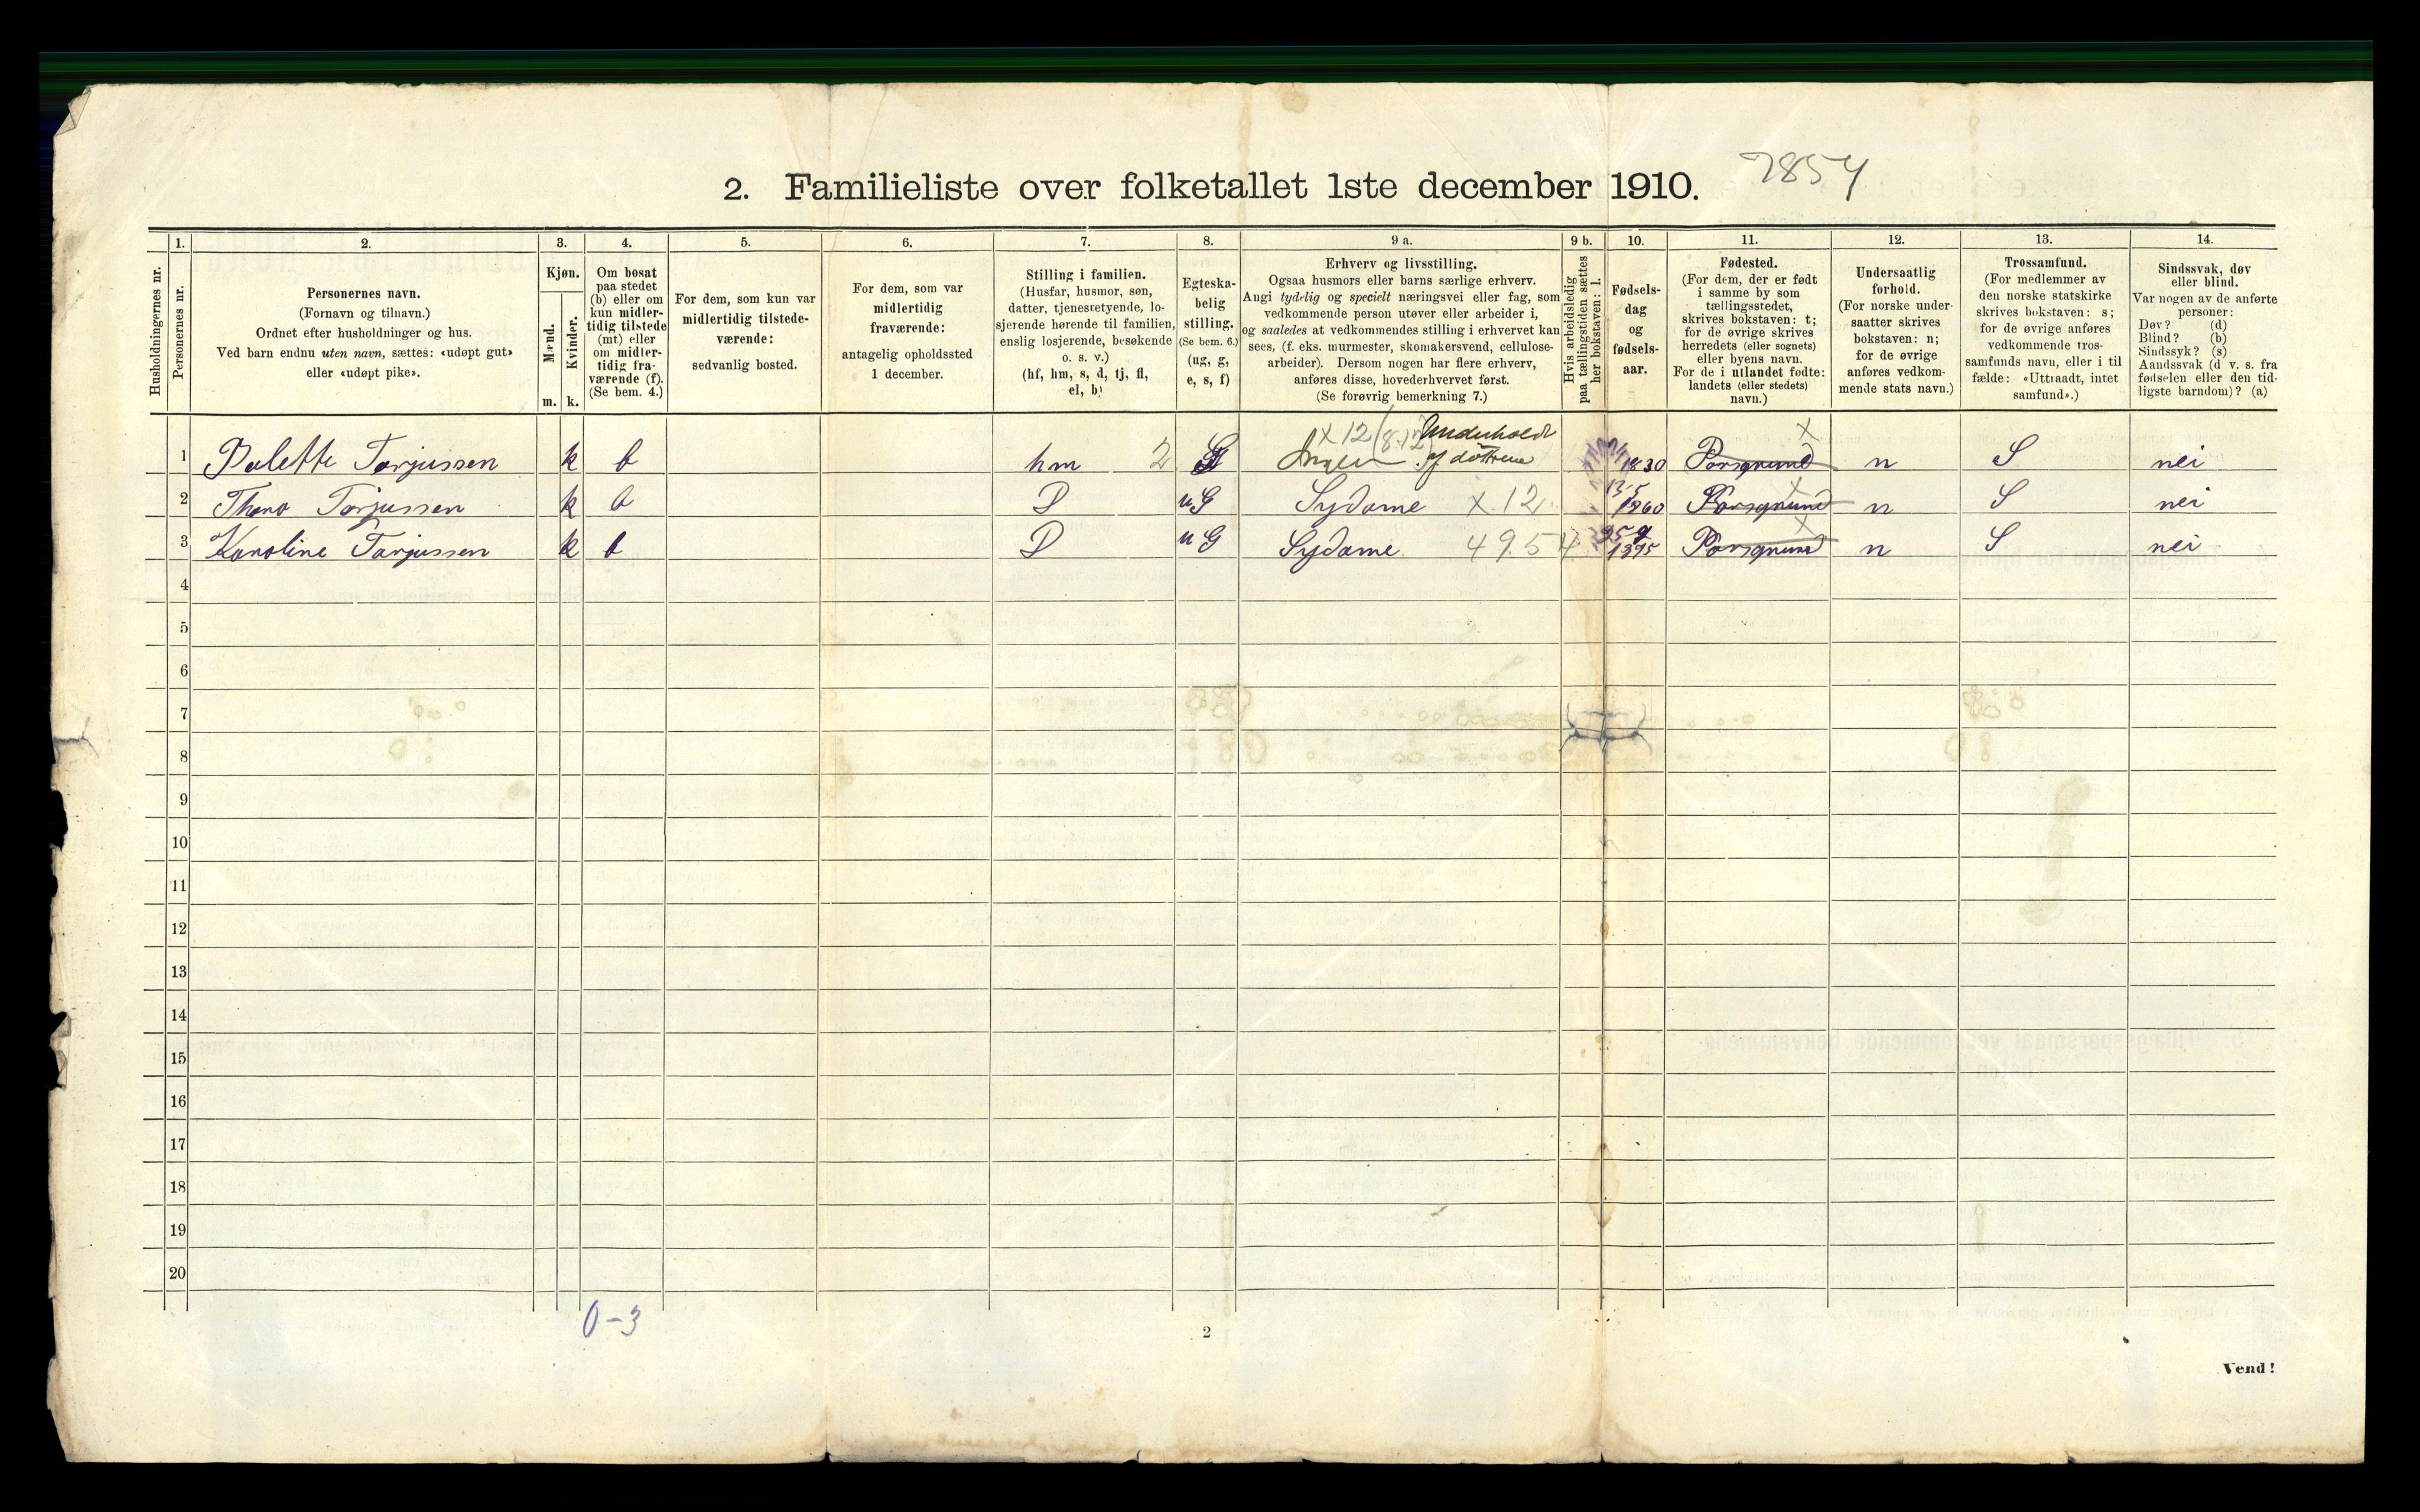 2. Familieliste over folketallet 1ste december 1910.
7854
Husholdningernes nr.
1.
Personernes nr.
2.
Personernes navn.
(Fornavn og tilnavn.)
Ordnet efter husholdninger og hus.
Ved barn endnu uten navn, sættes: «udøpt gut»
eller «udøpt pike».
3.
Kjøn.
Mænd.
Kvinder.
m. k.
4.
Om bosat
paa stedet
(b) eller om
kun midler-
tidig tilstede
(mt) eller
om midler-
tidig fra-
værende (f).
(Se bem. 4.)
5.
For dem, som kun var
midlertidig tilstede-
værende:
sedvanlig bosted.
6.
For dem, som var
midlertidig
fraværende:
antagelig opholdssted
1 december.
7.
Stilling i familien.
(Husfar, husmor, søn,
datter, tjenestetyende, lo-
sjerende hørende til familien,
enslig losjerende, besøkende
o. s. v.)
(hf, hm, s, d, tj, fl,
el, b)
8.
Egteska-
belig
stilling.
(Se bem. 6.)
(ug, g,
e, s, f)
9 a.
Erhverv og livsstilling.
Ogsaa husmors eller barns særlige erhverv.
Angi tydelig og specielt næringsvei eller fag, som
vedkommende person utøver eller arbeider i,
og saaledes at vedkommendes stilling i erhvervet kan
sees, (f. eks. murmester, skomakersvend, cellulose-
arbeider). Dersom nogen har flere erhverv,
anføres disse, hovederhvervet først.
(Se forøvrig bemerkning 7.)
9 b.
Hvis arbeidsledig
paa tællingstiden sættes
her bokstaven: l.
10.
Fødsels-
dag
og
fødsels-
aar.
11.
Fødested.
(For dem, der er født
i samme by som
tællingsstedet,
skrives bokstaven: t;
for de øvrige skrives
herredets (eller sognets)
eller byens navn.
For de i utlandet fødte:
landets (eller stedets)
navn.)
12.
Undersaatlig
forhold.
(For norske under-
saatter skrives
bokstaven: n;
for de øvrige
anføres vedkom-
mende stats navn.)
13.
Trossamfund.
(For medlemmer av
den norske statskirke
skrives bokstaven: s;
for de øvrige anføres
vedkommende tros-
samfunds navn, eller i til
fælde: «Uttraadt, intet
samfund».)
14.
Sindssvak, døv
eller blind.
Var nogen av de anførte
personer:
Døv? (d)
Blind? (b)
Sindssyk? (s)
Aandssvak (d v. s. fra
fødselen eller den tid-
ligste barndom)? (a)
x 12 (8.12) Underholdt
1 Palette Torjussen k b hm 2 Ingen af døttrene 1830 Porsgrund x n S nei
2 Thora Torjussen k b D uG Sydame x 12 13/5 1860 Porsgrund x n S nei
3 Karoline Torjussen k b D uG Sydame 4954 Porsgrund x n S nei
4
5
6
7
8
9
10
11
12
13
14
15
16
17
18
19
20
0-3
2
Vend!